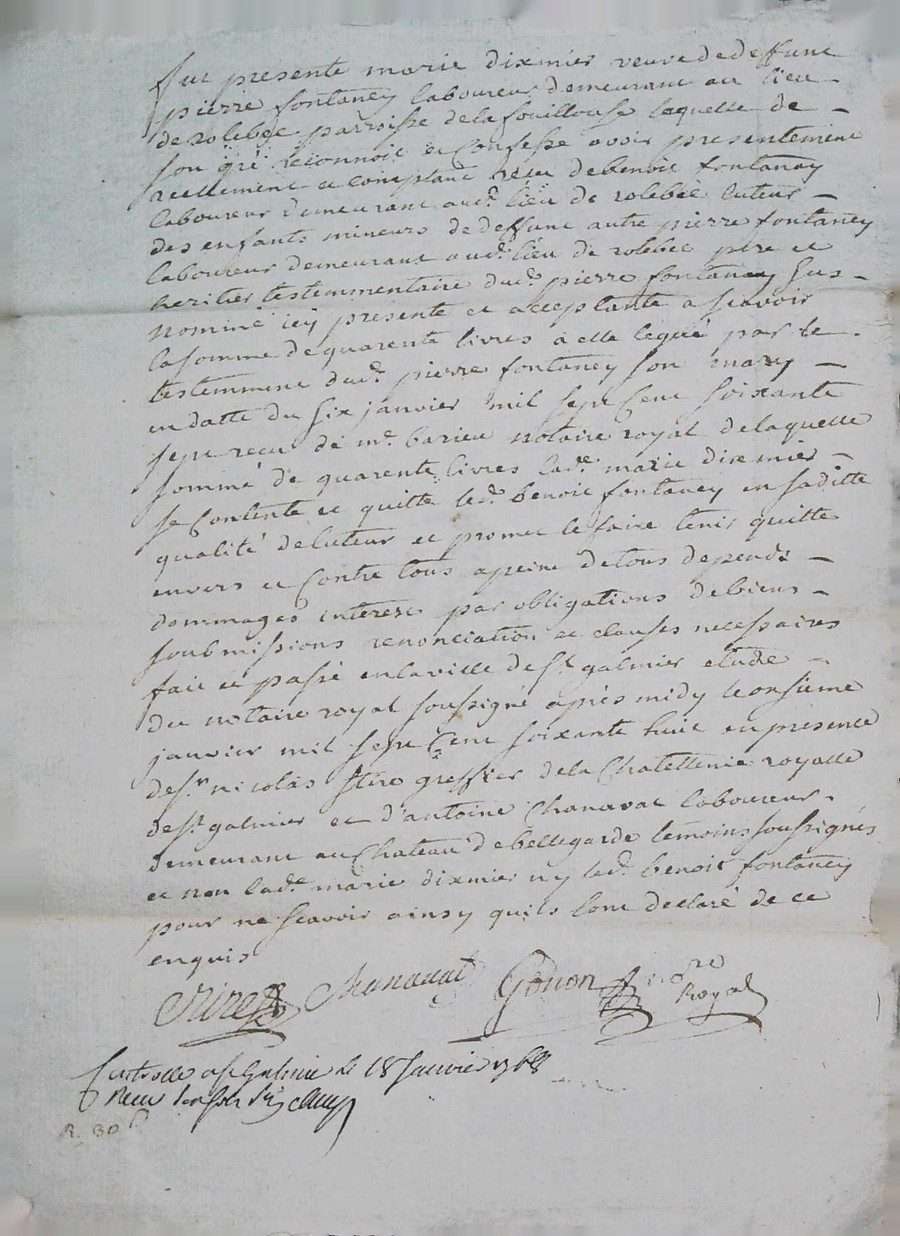 fut presente marie dixmier veuve de deffunt
pierre fontaney laboureur demeurant au lieu
de rolebee parroisse de la fouillouse laquelle de -
son gré reconnoit et confesse avoir presentement
reellement et comptant reçu de benoit fontaney
laboureur demeurant aud. lieu de rolebee tuteur -
des enfants mineurs de deffunt autre pierre fontaney
laboureur demeurant aud. lieu de rolebee pere et
heritier testemmentaire dud. pierre fontaney sus -
nommé icy presente et acceptante a scavoir
la somme de quarente livres a elle legué par le
testemment dud. pierre fontaney son mary -
en datte du six janvier mil sept cent soixante
sept recu de me. barieu notaire royal de laquelle
somme de quarente livres lade. marie dixmier -
se contente et quitte led. benoit fontaney en saditte
qualité de tuteur et promet le faire tenir quitte
envers et contre tous a peine de tous depends -
dommages interets par obligations de biens -
soubmissions renonciation et clauses necessaires
fait et passé en la ville de st. galmier etude -
du notaire royal soussigné après midy le onsieme
janvier mil sept cent soixante huit en presence
de sr. nicolas greffier de la chatellenie royalle
de st. galmier et d'antoine chanavat laboureur.
demeurant au chateau de bellegarde temoins soussignés
et non lade. marie dixmier ny led. benoit fontaney
pour ne scavoir ainsy quils ont declaré de ce
enquis
Chanavat Gonon nore
Royal
Controllé a st Galmier le 18 Janvier 1768
Recu
R. 30